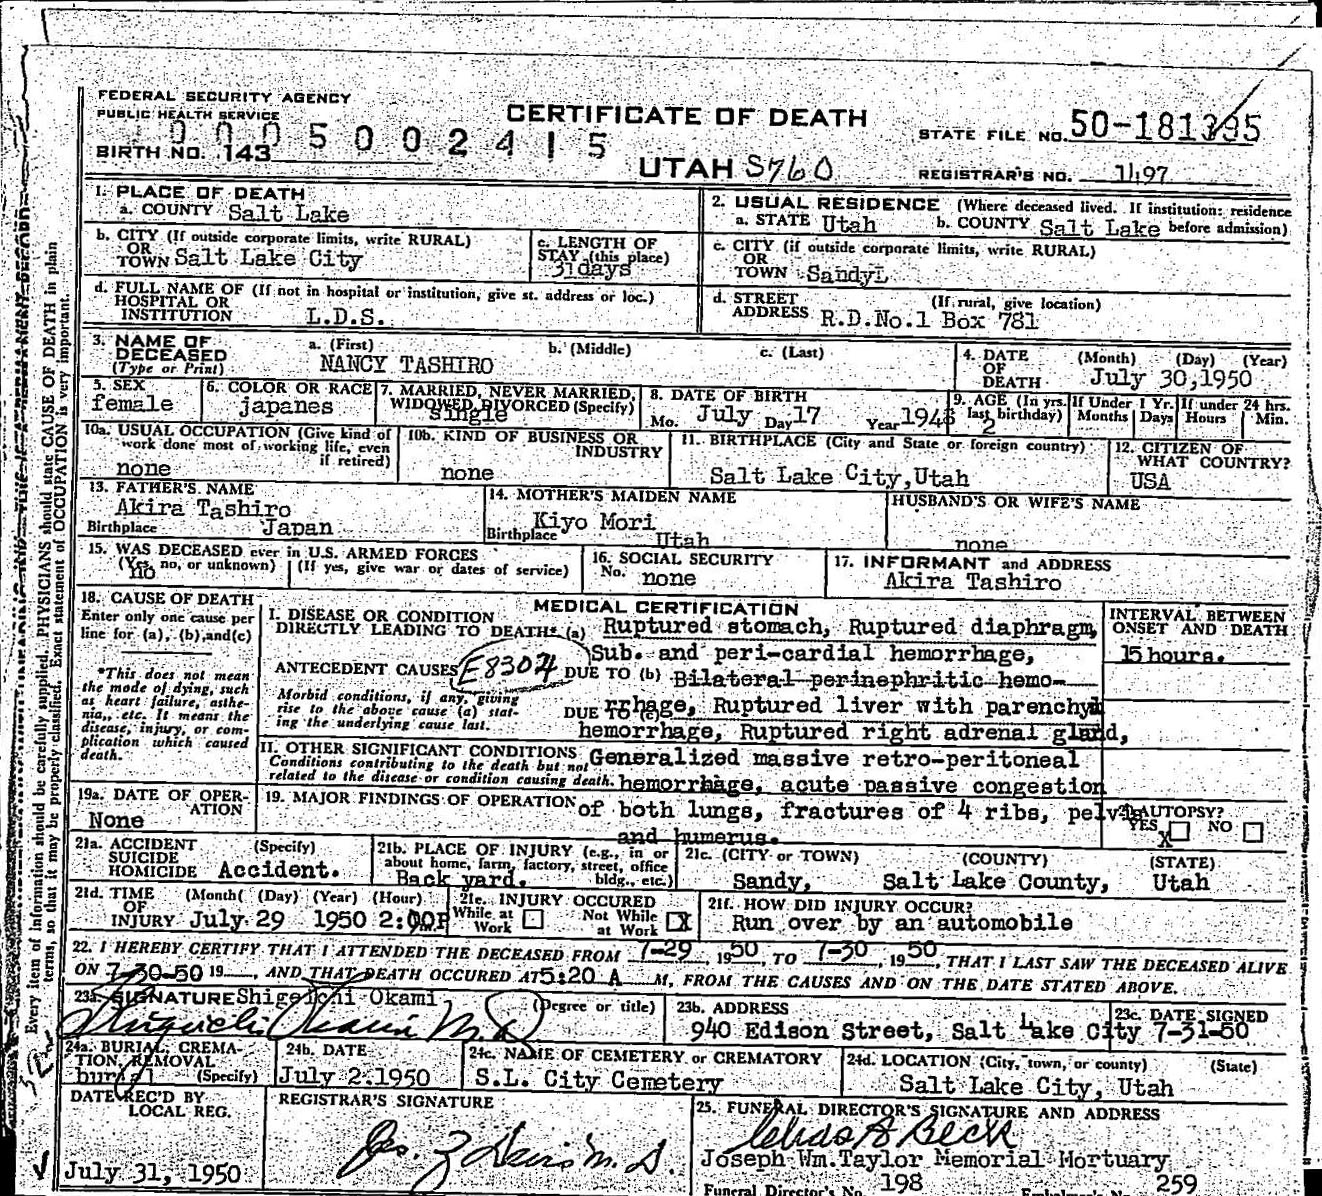 FEDERAL SECURITY AGENCY
PUBLIC HEALTH SERVICE
0005002415
BIRTH NO. 143
CERTIFICATE OF DEATH
UTAH S760
STATE FILE NO. 50-181395
REGISTRAR'S NO. 1197
1. PLACE OF DEATH
a. COUNTY Salt Lake
2. USUAL RESIDENCE (Where deceased lived. If institution: residence
a. STATE Utah b. COUNTY Salt Lake before admission)
b. CITY (If outside corporate limits, write RURAL)
OR
TOWN Salt Lake City
c. LENGTH OF
STAY (this place)
31days
c. CITY (if outside corporate limits, write RURAL)
OR
TOWN SandyL
d. FULL NAME OF (If not in hospital or institution, give st. address or loc.)
HOSPITAL OR
INSTITUTION L.D.S.
d. STREET (If rural, give location)
ADDRESS R.D.No.1 Box 781
3. NAME OF
DECEASED
(Type or Print)
a. (First) b. (Middle) c. (Last)
NANCY TASHIRO
4. DATE (Month) (Day) (Year)
OF
DEATH July 30,1950
5. SEX
female
6. COLOR OR RACE
japanes
7. MARRIED, NEVER MARRIED,
WIDOWED, DIVORCED (Specify)
single
8. DATE OF BIRTH
Mo. July Day 17 Year 1948
9. AGE (In yrs.
last birthday)
2
If Under 1 Yr.
Months Days
If under 24 hrs.
Hours Min.
10a. USUAL OCCUPATION (Give kind of
work done most of working life, even
if retired)
none
10b. KIND OF BUSINESS OR
INDUSTRY
none
11. BIRTHPLACE (City and State or foreign country)
Salt Lake City,Utah
12. CITIZEN OF
WHAT COUNTRY?
USA
13. FATHER'S NAME
Akira Tashiro
Birthplace Japan
14. MOTHER'S MAIDEN NAME
Kiyo Mori
Birthplace Utah
HUSBAND'S OR WIFE'S NAME
none
15. WAS DECEASED ever in U.S. ARMED FORCES
(Yes, no, or unknown) (If yes, give war or dates of service)
no
16. SOCIAL SECURITY
No. none
17. INFORMANT and ADDRESS
Akira Tashiro
18. CAUSE OF DEATH
Enter only one cause per
line for (a), (b), and (c)
*This does not mean
the mode of dying, such
as heart failure, asthe-
nia, etc. It means the
disease, injury, or com-
plication which caused
death.
MEDICAL CERTIFICATION
I. DISEASE OR CONDITION
DIRECTLY LEADING TO DEATH* (a) Ruptured stomach, Ruptured diaphragm,
Sub. and peri-cardial hemorrhage,
ANTECEDENT CAUSES E8304 DUE TO (b) Bilateral perinephritic hemo-
Morbid conditions, if any, giving
rise to the above cause (a) stat-
ing the underlying cause last.
DUE TO (c) rrhage, Ruptured liver with parenchym
hemorrhage, Ruptured right adrenal gland,
II. OTHER SIGNIFICANT CONDITIONS
Conditions contributing to the death but not
related to the disease or condition causing death.
Generalized massive retro-peritoneal
hemorrhage, acute passive congestion
INTERVAL BETWEEN
ONSET AND DEATH
15 hours.
19a. DATE OF OPER-
ATION
None
19. MAJOR FINDINGS OF OPERATION
of both lungs, fractures of 4 ribs, pelvis
and humerus.
20. AUTOPSY?
YES X NO
21a. ACCIDENT (Specify)
SUICIDE
HOMICIDE Accident.
21b. PLACE OF INJURY (e.g., in or
about home, farm, factory, street, office
bldg., etc.)
Back yard.
21c. (CITY or TOWN) (COUNTY) (STATE)
Sandy, Salt Lake County, Utah
21d. TIME (Month) (Day) (Year) (Hour)
OF
INJURY July 29 1950 2:00P
21e. INJURY OCCURED
While at Work
Not While at Work X
21f. HOW DID INJURY OCCUR?
Run over by an automobile
22. I HEREBY CERTIFY THAT I ATTENDED THE DECEASED FROM 7-29, 1950, TO 7-30, 1950, THAT I LAST SAW THE DECEASED ALIVE
ON 7-30-50 19___, AND THAT DEATH OCCURED AT 5:20 A M, FROM THE CAUSES AND ON THE DATE STATED ABOVE.
23a. SIGNATURE Shigeichi Okami (Degree or title)
Shigeichi Okami M.D.
23b. ADDRESS
940 Edison Street, Salt Lake City
23c. DATE SIGNED
7-31-50
24a. BURIAL, CREMA-
TION, REMOVAL
burial (Specify)
24b. DATE
July 2.1950
24c. NAME OF CEMETERY or CREMATORY
S.L. City Cemetery
24d. LOCATION (City, town, or county) (State)
Salt Lake City, Utah
DATE REC'D BY
LOCAL REG.
July 31, 1950
REGISTRAR'S SIGNATURE
25. FUNERAL DIRECTOR'S SIGNATURE AND ADDRESS
Chas A Beck
Joseph Wm.Taylor Memorial Mortuary
Funeral Director's No. 198 Embalmer's No. 259
Every item of information should be carefully supplied. PHYSICIANS should state CAUSE OF DEATH in plain
terms, so that it may be properly classified. Exact statement of OCCUPATION is very important.